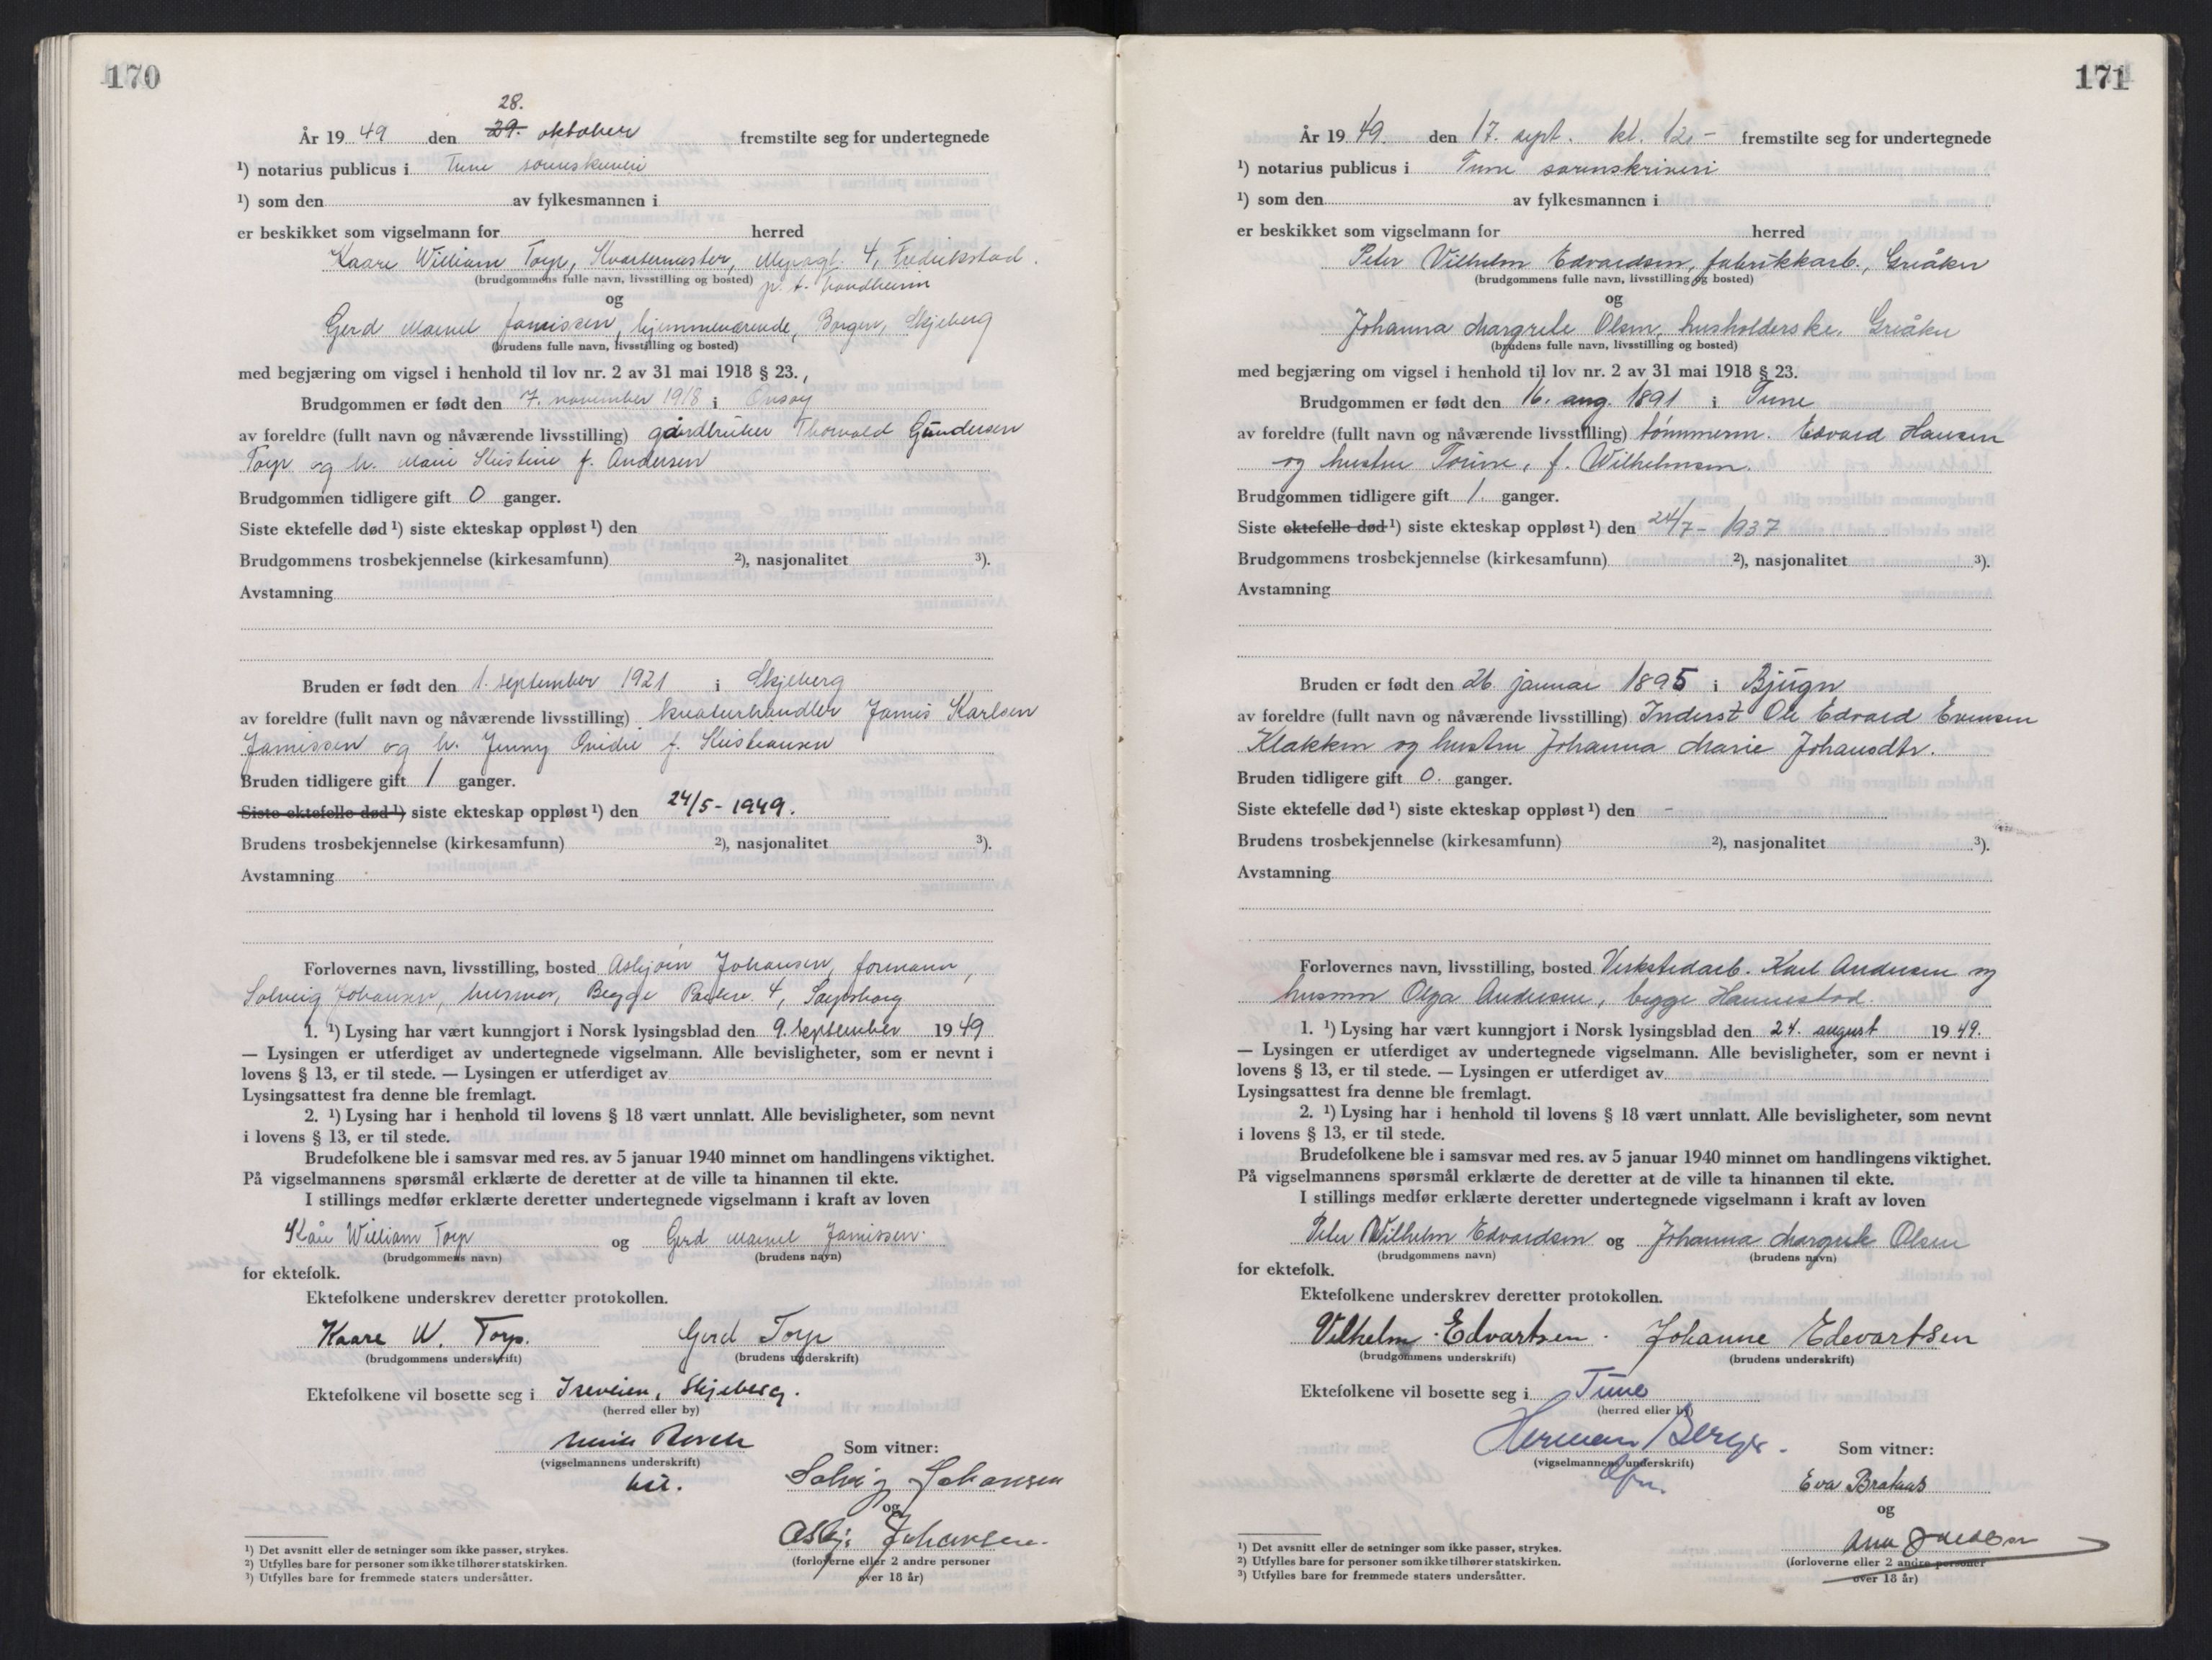 170
28.
År 19 49 den 29. oktober fremstilte seg for undertegnede
¹) notarius publicus i Tune sorenskriveri
¹) som den av fylkesmannen i
er beskikket som vigselmann for herred
Kaare William Torp, Kvartermester, 4, Fredrikstad.
(brudgommens fulle navn, livsstilling og bosted) p. t. Trondheim
og
Gerd Jamissen, hjemmeværende, Borgen, Skjeberg
(brudens fulle navn, livsstilling og bosted)
med begjæring om vigsel i henhold til lov nr. 2 av 31 mai 1918 § 23.
Brudgommen er født den 7. november 1918 i Onsøy
av foreldre (fullt navn og nåværende livsstilling) gårdbruker Thorvald Gundersen
Torp og h. Marie Kristine f. Andersen
Brudgommen tidligere gift 0 ganger.
Siste ektefelle død ¹) siste ekteskap oppløst ¹) den
Brudgommens trosbekjennelse (kirkesamfunn) ²), nasjonalitet ³).
Avstamning
Bruden er født den 1. september 1921 i Skjeberg
av foreldre (fullt navn og nåværende livsstilling) kreaturhandler Jamis Karlsen
Jamissen og h. Jenny Ovidie f. Kristiansen
Bruden tidligere gift 1 ganger.
Siste ektefelle død ¹) siste ekteskap oppløst ¹) den 24/5 - 1949.
Brudens trosbekjennelse (kirkesamfunn) ²), nasjonalitet ³).
Avstamning
Forlovernes navn, livsstilling, bosted Asbjørn Johansen, formann,
Solveig Johansen, husmor, Begge 4, Sarpsborg
1. ¹) Lysing har vært kunngjort i Norsk lysingsblad den 9. september 19 49
— Lysingen er utferdiget av undertegnede vigselmann. Alle bevisligheter, som er nevnt i
lovens § 13, er til stede. — Lysingen er utferdiget av
Lysingsattest fra denne ble fremlagt.
2. ¹) Lysing har i henhold til lovens § 18 vært unnlatt. Alle bevisligheter, som nevnt
i lovens § 13, er til stede.
Brudefolkene ble i samsvar med res. av 5 januar 1940 minnet om handlingens viktighet.
På vigselmannens spørsmål erklærte de deretter at de ville ta hinannen til ekte.
I stillings medfør erklærte deretter undertegnede vigselmann i kraft av loven
Kåre William Torp og Gerd Jamissen
(brudgommens navn) (brudens navn)
for ektefolk.
Ektefolkene underskrev deretter protokollen.
Kaare W. Torp. Gerd Torp
(brudgommens underskrift) (brudens underskrift)
Ektefolkene vil bosette seg i Iseveien, Skjeberg.
(herred eller by)
Som vitner:
(vigselmannens underskrift)
Solveig Johansen
og
Asbj. Johansen.
(forloverne eller 2 andre personer
over 18 år)
¹) Det avsnitt eller de setninger som ikke passer, strykes.
²) Utfylles bare for personer som ikke tilhører statskirken.
³) Utfylles bare for fremmede staters undersåtter.
171
År 19 49. den 17. sept. kl. 12.- fremstilte seg for undertegnede
¹) notarius publicus i Tune sorenskriveri
¹) som den av fylkesmannen i
er beskikket som vigselmann for herred
Peter Vilhelm Edvardsen, fabrikkarb., Greåker
(brudgommens fulle navn, livsstilling og bosted)
og
Johanna Margrete Olsen, husholderske, Greåker
(brudens fulle navn, livsstilling og bosted)
med begjæring om vigsel i henhold til lov nr. 2 av 31 mai 1918 § 23.
Brudgommen er født den 16. aug. 1891 i Tune
av foreldre (fullt navn og nåværende livsstilling) tømmerm. Edvard Hansen
og hustru Torine, f. Wilhelmsen.
Brudgommen tidligere gift 1. ganger.
Siste ektefelle død ¹) siste ekteskap oppløst ¹) den 24/7 - 1937
Brudgommens trosbekjennelse (kirkesamfunn) ²), nasjonalitet ³).
Avstamning
Bruden er født den 26. januar 1895 i Bjugn
av foreldre (fullt navn og nåværende livsstilling) Inderst Ole Edvard Evensen
Klakken og hustru Johanna Marie Johansdtr.
Bruden tidligere gift 0. ganger.
Siste ektefelle død ¹) siste ekteskap oppløst ¹) den -
Brudens trosbekjennelse (kirkesamfunn) ²), nasjonalitet ³).
Avstamning
Forlovernes navn, livsstilling, bosted Verkstedarb. Karl Andersen og
husmor Olga Andersen, begge Hannestad.
1. ¹) Lysing har vært kunngjort i Norsk lysingsblad den 24. august 19 49.
— Lysingen er utferdiget av undertegnede vigselmann. Alle bevisligheter, som er nevnt i
lovens § 13, er til stede. — Lysingen er utferdiget av
Lysingsattest fra denne ble fremlagt.
2. ¹) Lysing har i henhold til lovens § 18 vært unnlatt. Alle bevisligheter, som nevnt
i lovens § 13, er til stede.
Brudefolkene ble i samsvar med res. av 5 januar 1940 minnet om handlingens viktighet.
På vigselmannens spørsmål erklærte de deretter at de ville ta hinannen til ekte.
I stillings medfør erklærte deretter undertegnede vigselmann i kraft av loven
Peter Wilhelm Edvardsen og Johanna Margrete Olsen
(brudgommens navn) (brudens navn)
for ektefolk.
Ektefolkene underskrev deretter protokollen.
Vilhelm Edvartsen. Johanne Edevartsen
(brudgommens underskrift) (brudens underskrift)
Ektefolkene vil bosette seg i Tune
(herred eller by)
Herman Berger. Som vitner:
(vigselmannens underskrift)
Eva Brataas
og
(forloverne eller 2 andre personer
over 18 år)
¹) Det avsnitt eller de setninger som ikke passer, strykes.
²) Utfylles bare for personer som ikke tilhører statskirken.
³) Utfylles bare for fremmede staters undersåtter.